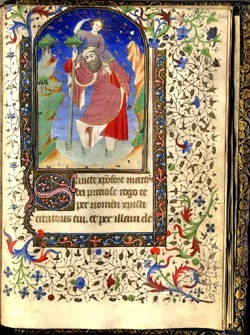 Sancte xpofore martir
dei preciose rogo te
per nomen xpisti
creatoris tui. et per illam de